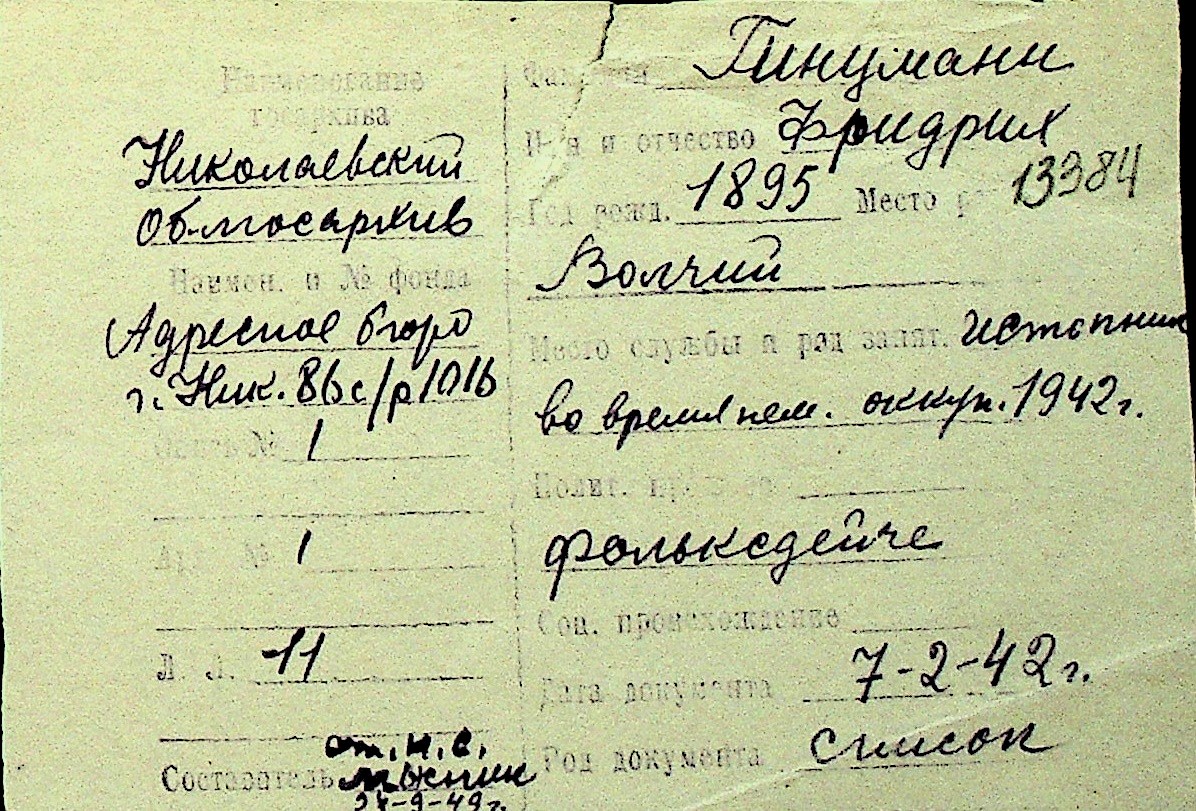 Наименование
госархива
Николаевский
Облгосархив
Наимен. и № фонда
Адресное бюро
г. Ник.
Опись № 1
Арх. № 1
Л. Л. 11
Составитель ст. н. с.
27-9-49 г.
Фамилия Гинцманн
Имя и отчество Фридрих
Год рожд. 1895 Место р 13384
Волчий
Место службы и род занят. истопник
во время нем. оккуп. 1942 г.
Полит.
фольксдейче
Соц. происхождение
Дата документа 7-2-42 г.
Род документа список